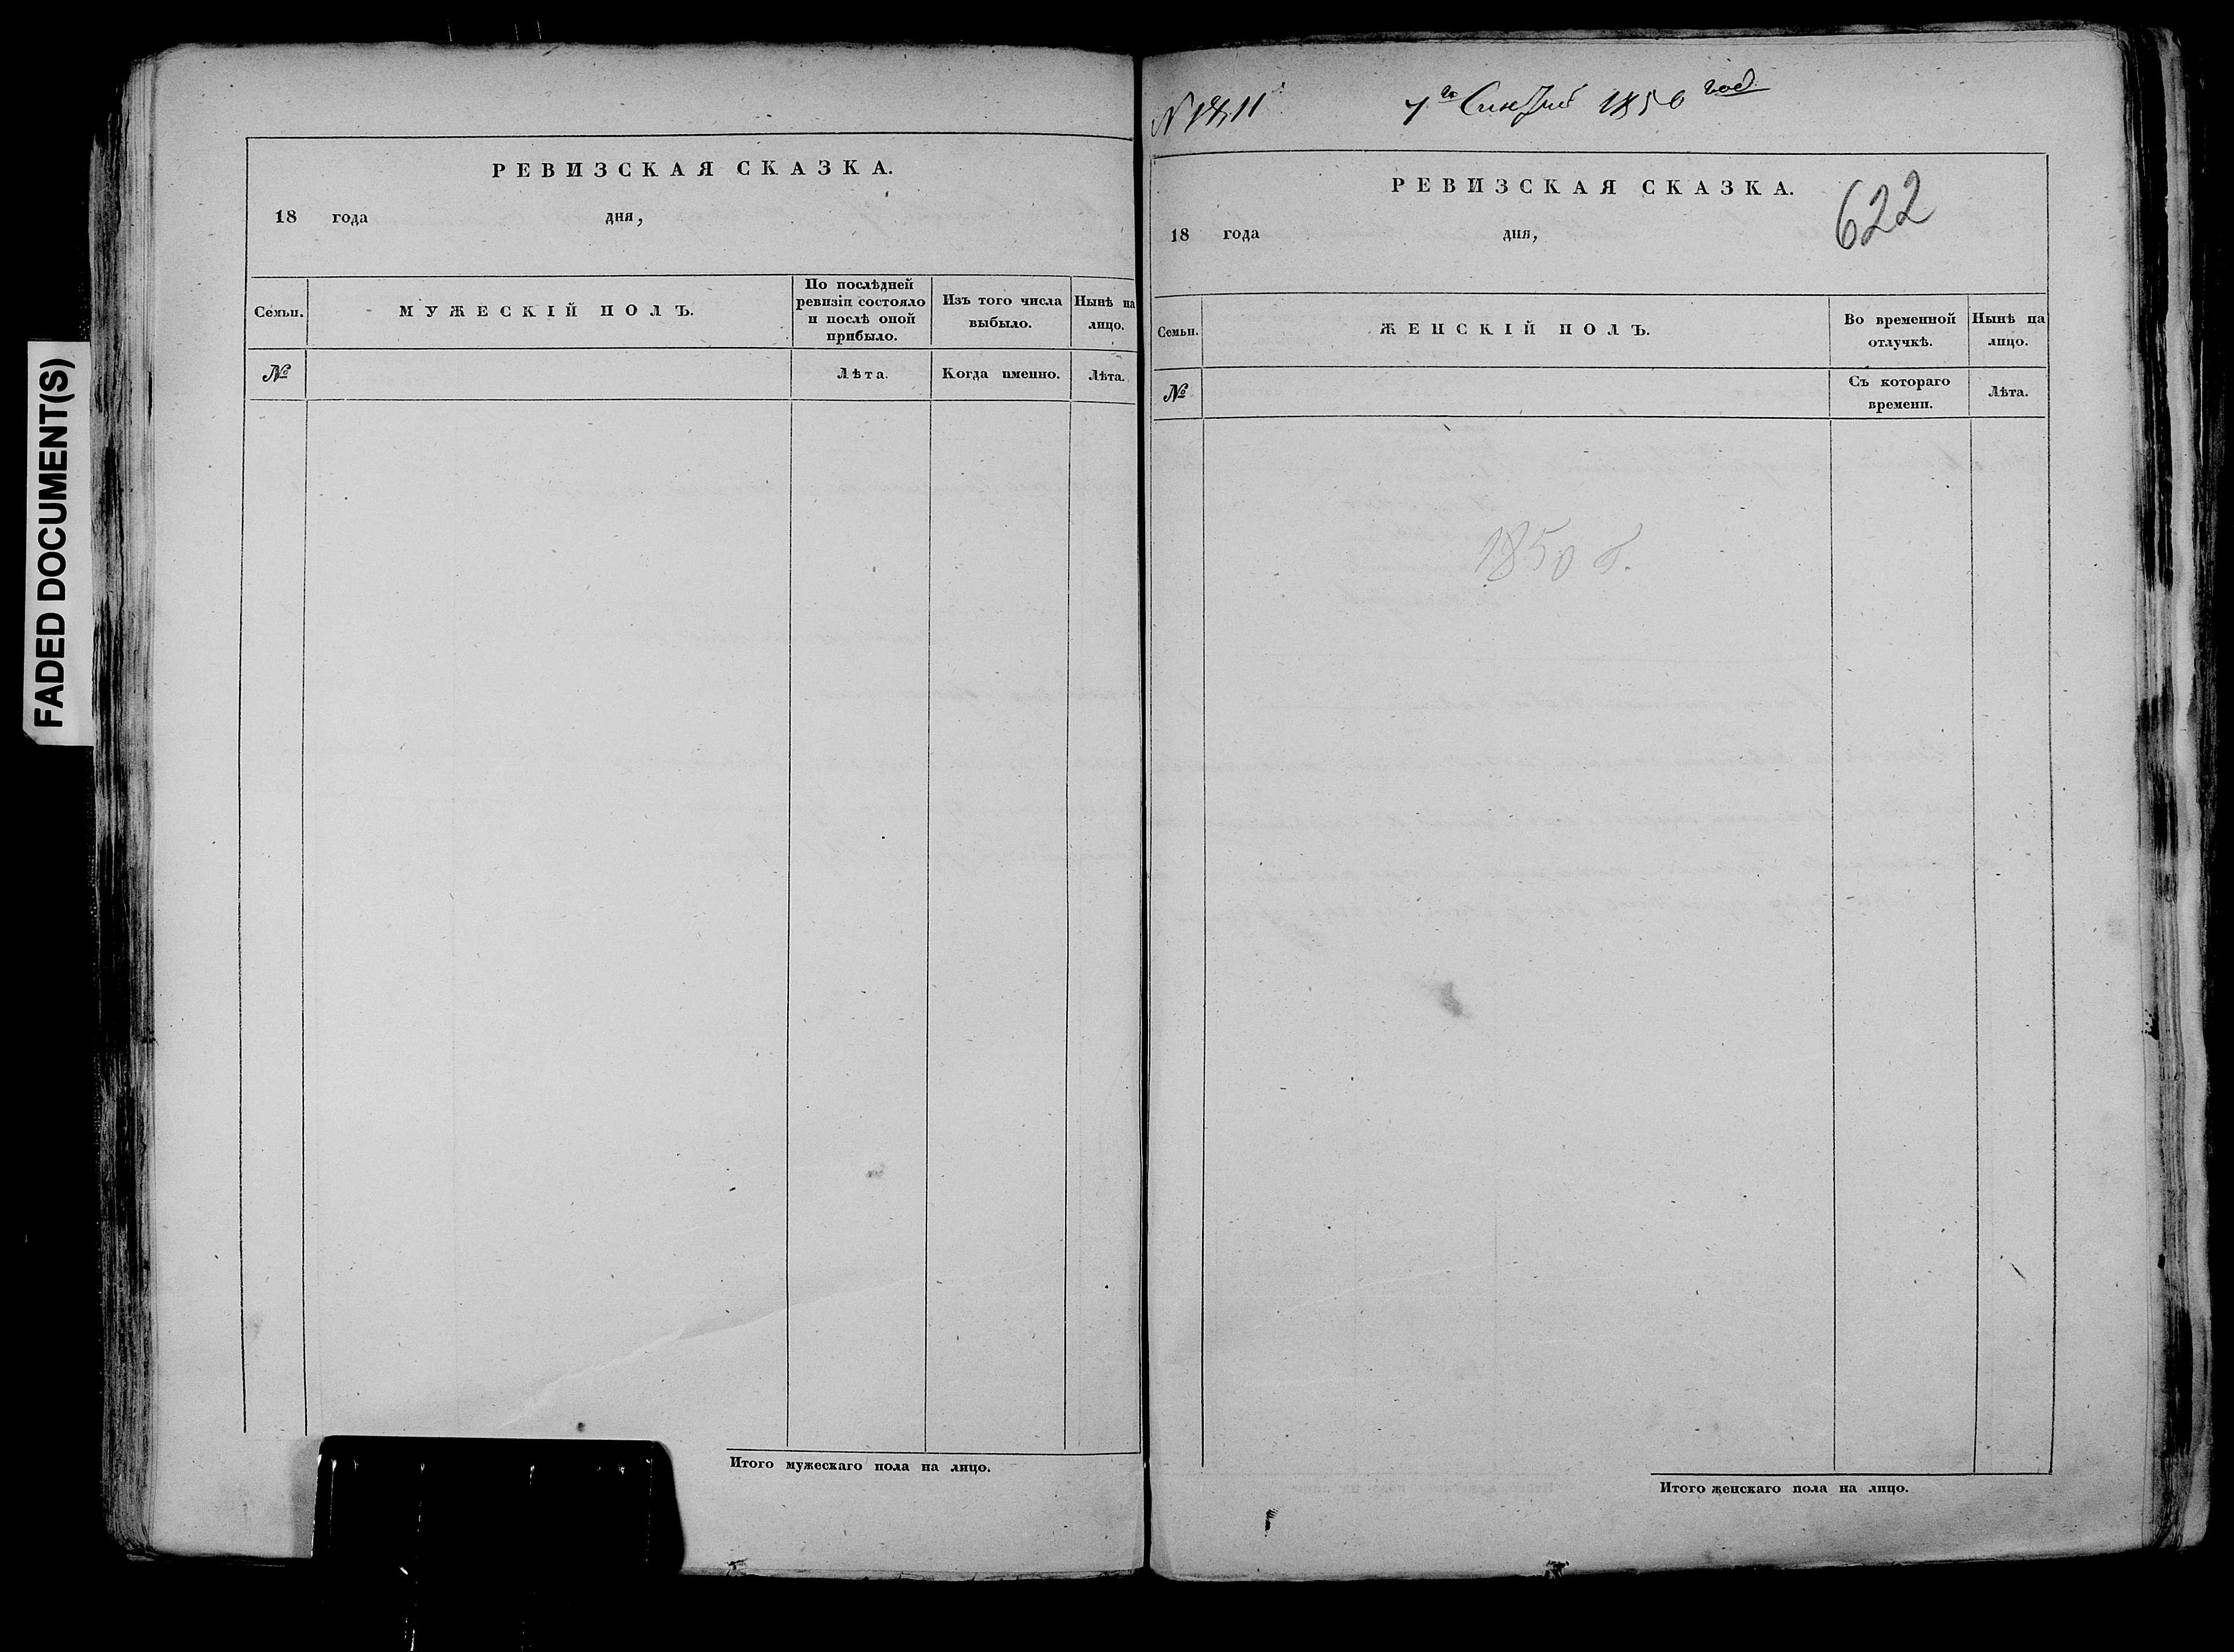 FADED DOCUMENT(S)
РЕВИЗСКАЯ СКАЗКА.
18 года дня,
Семьи.
МУЖЕСКІЙ ПОЛЪ.
По послѣдней
ревизіи состояло
и послѣ оной
прибыло.
Изъ того числа
выбыло.
Нынѣ на
лицо.
№
Лѣта.
Когда именно.
Лѣта.
Итого мужескаго пола на лицо.
1850 год
РЕВИЗСКАЯ СКАЗКА.
622
18 года дня,
Семьи.
ЖЕНСКІЙ ПОЛЪ.
Во временной
отлучкѣ.
Нынѣ на
лицо.
№
Съ котораго
времени.
Лѣта.
1850 г.
Итого женскаго пола на лицо.